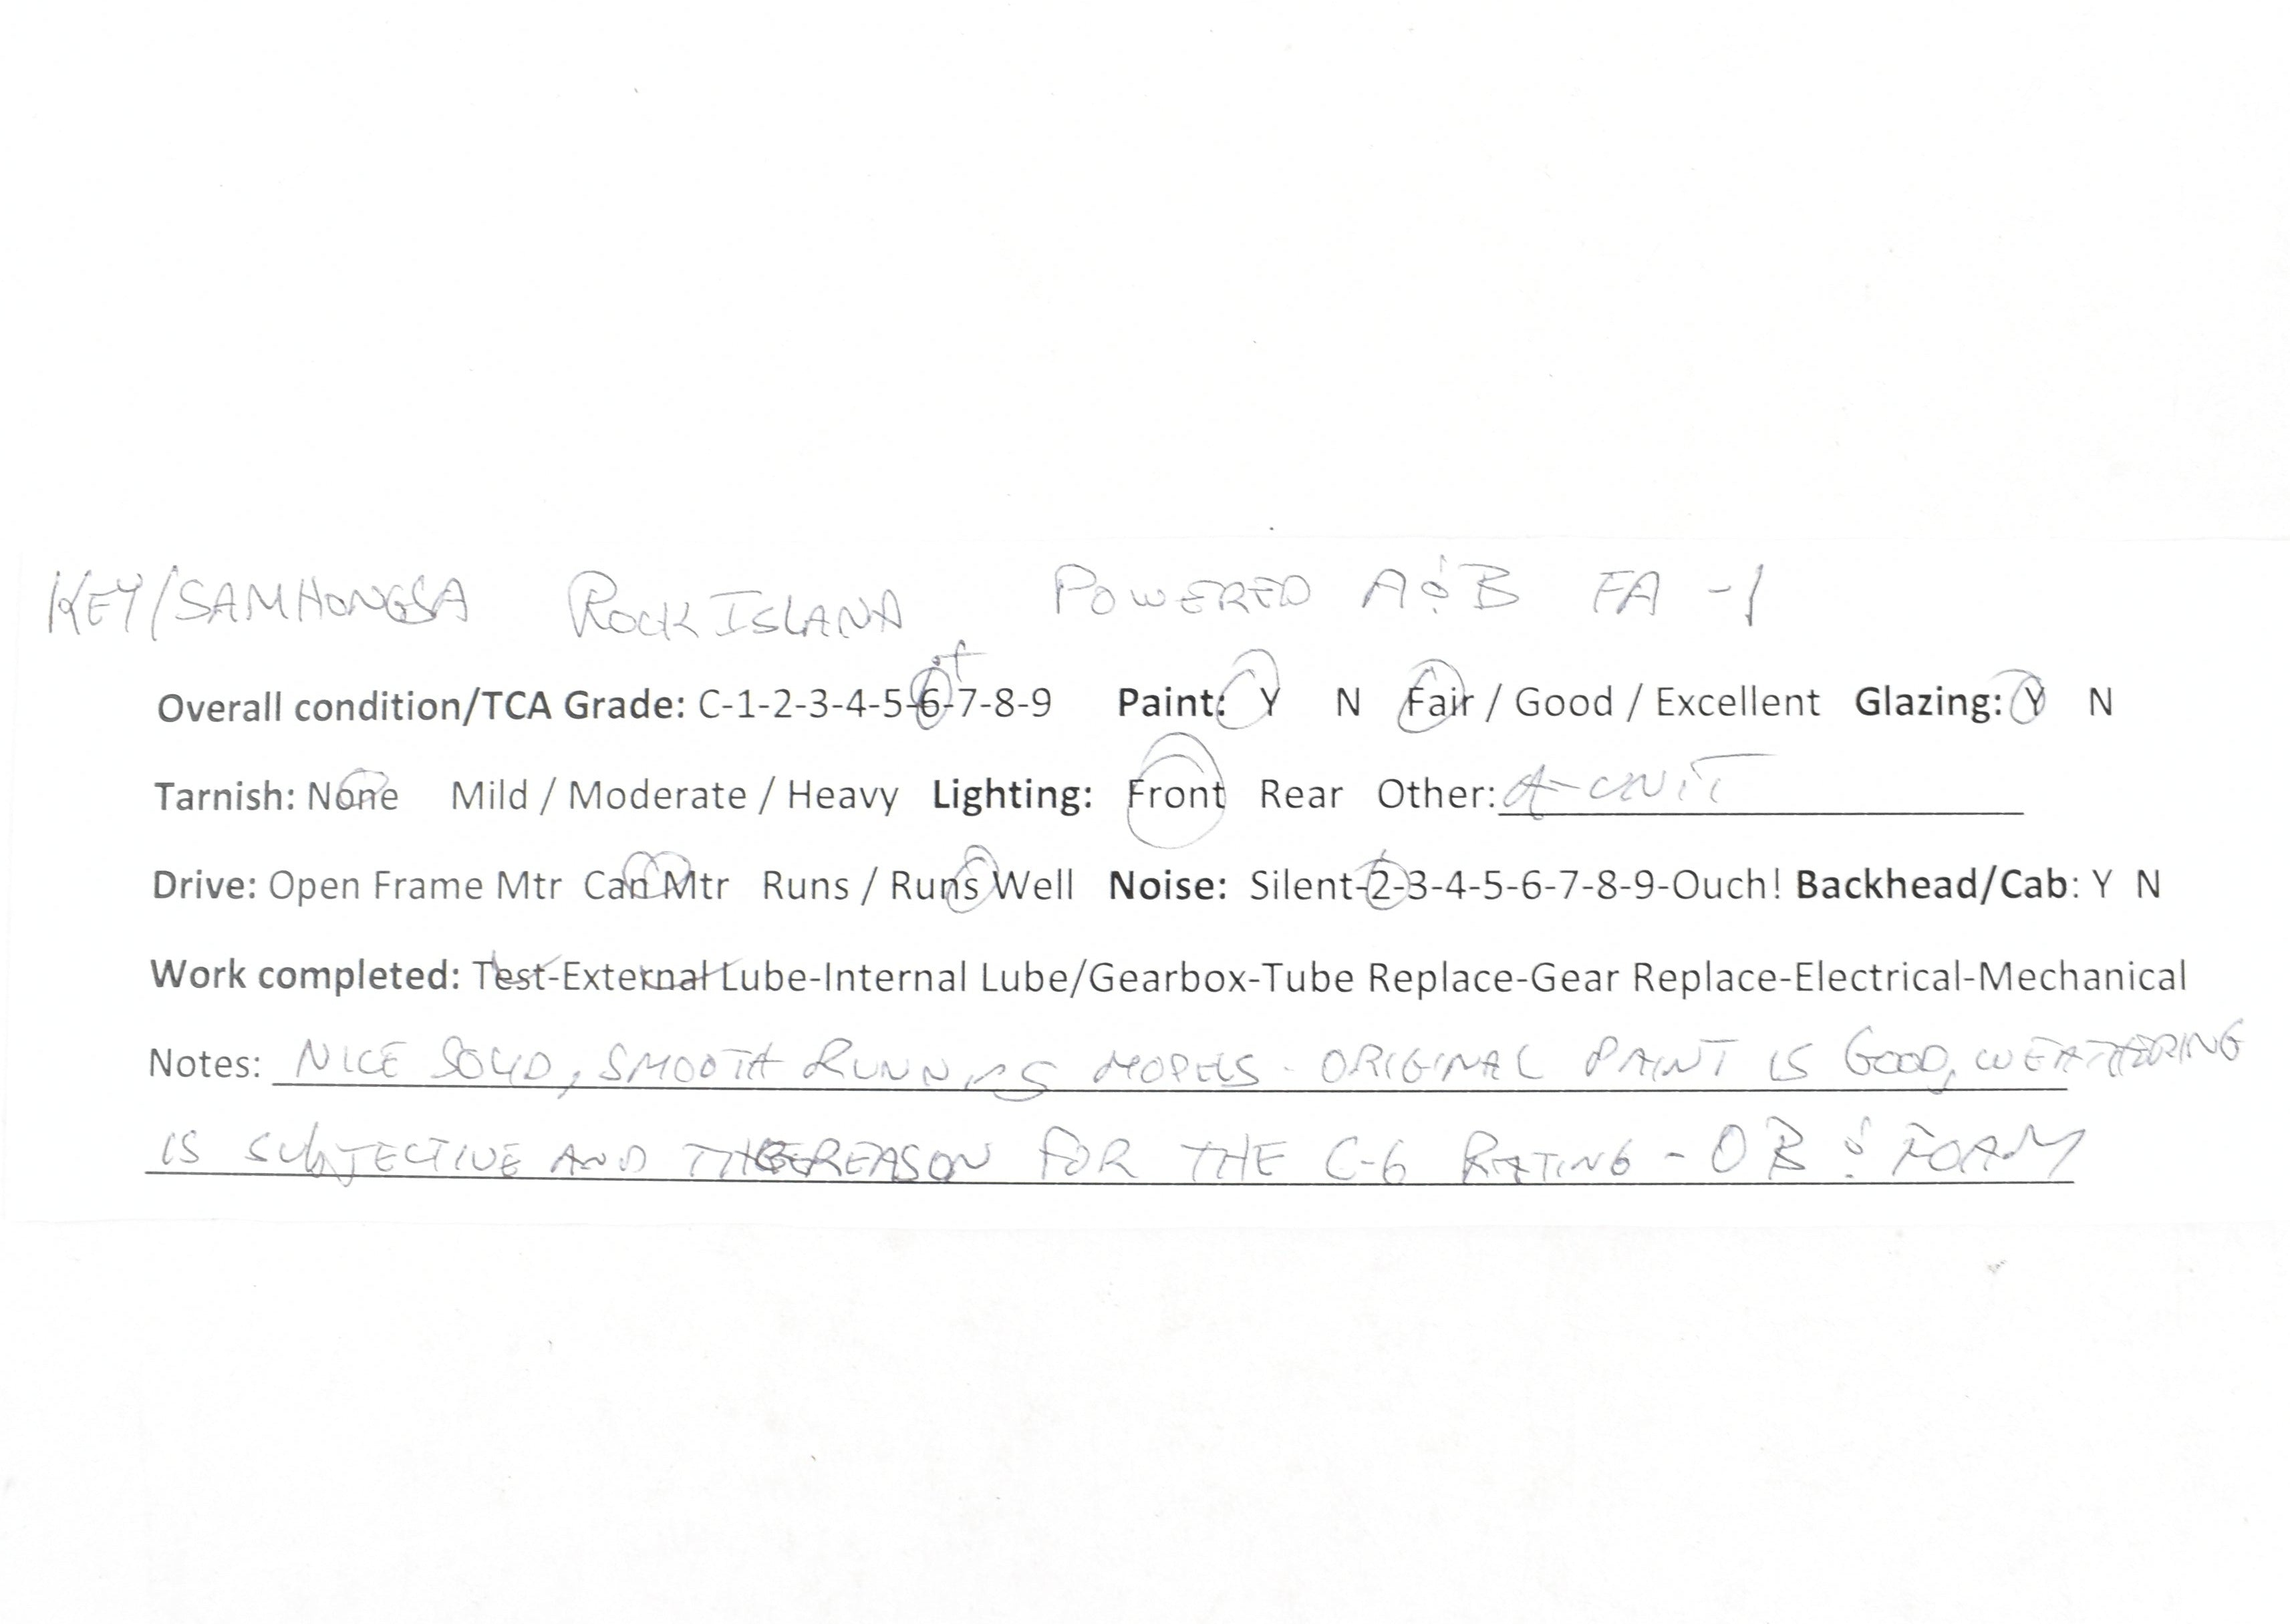 KEY/SAMHONGSA ROCK ISLAND POWERED A & B FA-1
Overall condition/TCA Grade: C-1-2-3-4-5-6-7-8-9 Paint: Y N Fair / Good / Excellent Glazing: Y N
Tarnish: None Mild / Moderate / Heavy Lighting: Front Rear Other: A-UNIT
Drive: Open Frame Mtr Can Mtr Runs / Runs Well Noise: Silent-2-3-4-5-6-7-8-9-Ouch! Backhead/Cab: Y N
Work completed: Test-External Lube-Internal Lube/Gearbox-Tube Replace-Gear Replace-Electrical-Mechanical
Notes: NICE SOLID, SMOOTH RUNNING MODELS - ORIGINAL PAINT IS GOOD, WEATHERING
IS SUBJECTIVE AND THE REASON FOR THE C-6 RATING - OB & FOAM